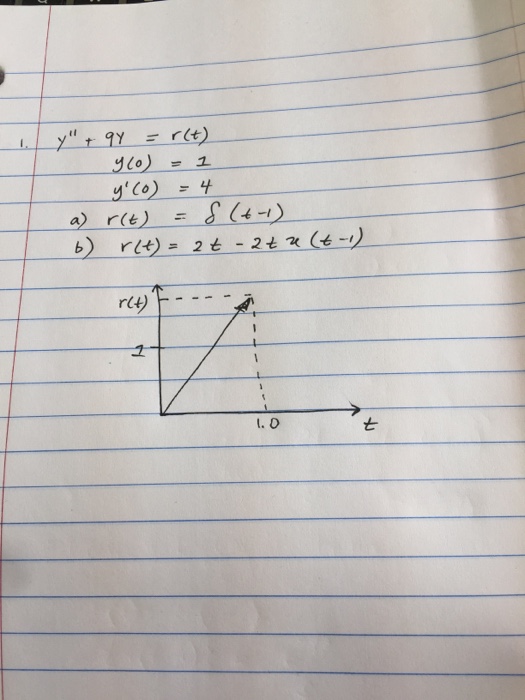 1. y" + 9y = r(t)
y(0) = 1
y'(0) = 4
a) r(t) = δ(t-1)
b) r(t) = 2t - 2t u(t-1)
r(t)
1
1.0
t